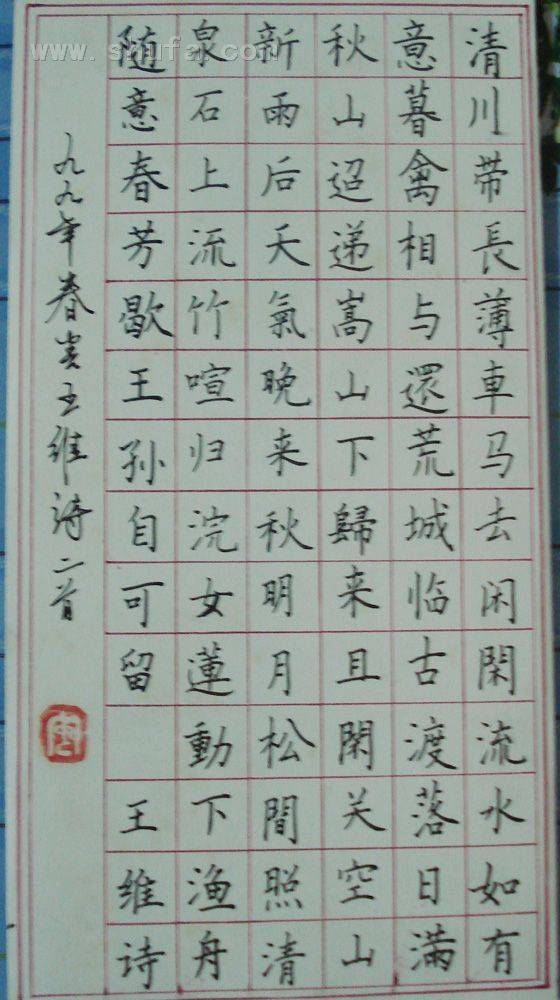 清川带長薄車马去闲閑流水如有
意暮禽相与還荒城临古渡落日满
秋山迢递嵩山下歸来且閑关空山
新雨后天氣晚来秋明月松間照清
泉石上流竹喧归浣女蓮動下渔舟
随意春芳歇王孙自可留 王维诗
九九年春王维诗二首